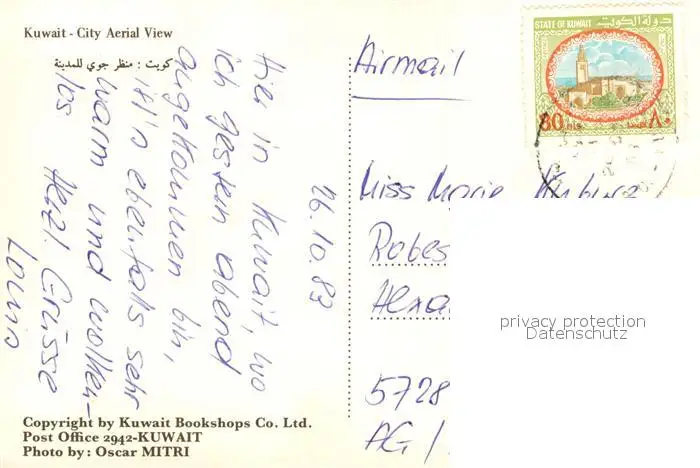 Kuwait - City Aerial View
كويت : منظر جوي للمدينة
26.10.83
Hier in Kuwait, wo
ich gestern abend
angekommen bin,
ist's ebenfalls sehr
warm und wolken-
los Herzl. Grüsse
Louis
Copyright by Kuwait Bookshops Co. Ltd.
Post Office 2942-KUWAIT
Photo by : Oscar MITRI
Airmail
STATE OF KUWAIT دولة الكويت
80 ٨٠
Miss Marie
Robes
Alxa
5728
AG /
privacy protection
Datenschutz